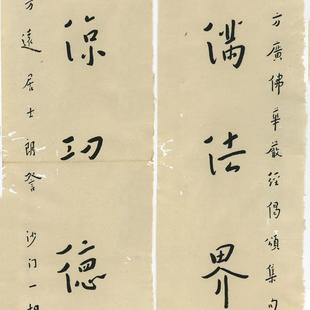 方廣佛華嚴經偈頌集句
滿法界
涼功德
遠居士朗詧 沙门一